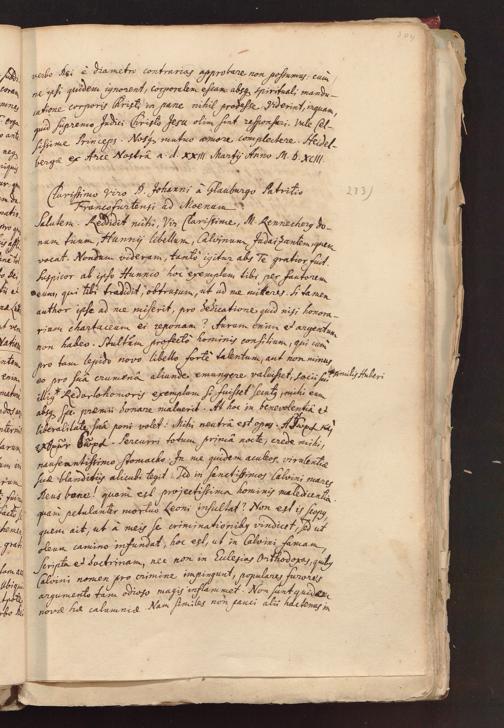 204
verbo Dei è diametro contrarias approbare non possumus: cum
ne ipsi quidem ignorent, corporalem escam absq; spirituali mandu-
catione corporis Christi in pane nihil prodesse. Viderint, inquam,
quid supremo Judici Christo Jesu olim sint responsuri. Vale Cel-
sissime Princeps. Nosq; mutuo amore complectere. Heidel-
bergæ ex Arce Nostrâ a. d. XXIII Martij Anno M. D. XCIII.
Clarissimo Viro D. Johanni à Glauburgo Patritio
Francofurtensi ad Moenum
213)
Salutem. Reddidit mihi, Vir Clarissime, M. Rennechery do-
num tuum, Hunnij libellum, Calvinum Judaizantem, quem
vocat. Nondum videram, tantò igitur abs Te gratior fuit.
Suspicor ab ipso Hunnio hoc exemplum tibi per fautorem
eum, qui tibi tradidit, ut ad me mitteres. Si tamen
author ipse ad me miserit, pro dedicatione quid nisi honora-
rium chartaceum ei reponam? Aurum enim et argentum
non habeo. Stultum profectò hominis consilium, qui cum
pro tam lepido novo libello fortè talentum, aut non minus
eo pro suâ crumenâ alicunde emungere valuisset,
æmulis Huberi
exemplum si fuisset secutus, mihi eam
absq; spe præmij donare maluerit. At hoc in benevolentiæ et
liberalitatis suæ poni volet. Mihi neutrâ est opus.
Percurri totum primâ nocte, crede mihi,
nauseantissimo stomacho. In me quidem aculeos virulentiæ
suæ blanditiis alicubi tegit. Sed in sanctissimos Calvini manes
Deus bone! quàm est projectissima hominis maledicentia,
quàm petulanter mortuo Leoni insultat? Non est is scopus
quem ait, ut à meis se criminationibus vindicet, sed ut
oleum camino infundat, hoc est, ut in Calvini famam,
scripta et doctrinam, nec non in Ecclesias Orthodoxas, quibus
Calvini nomen pro crimine impingunt, populares furores
argumento tam odioso magis inflammet. Non sunt quidem
novæ hæ calumniæ. Nam similes non pauci alii hactenus in